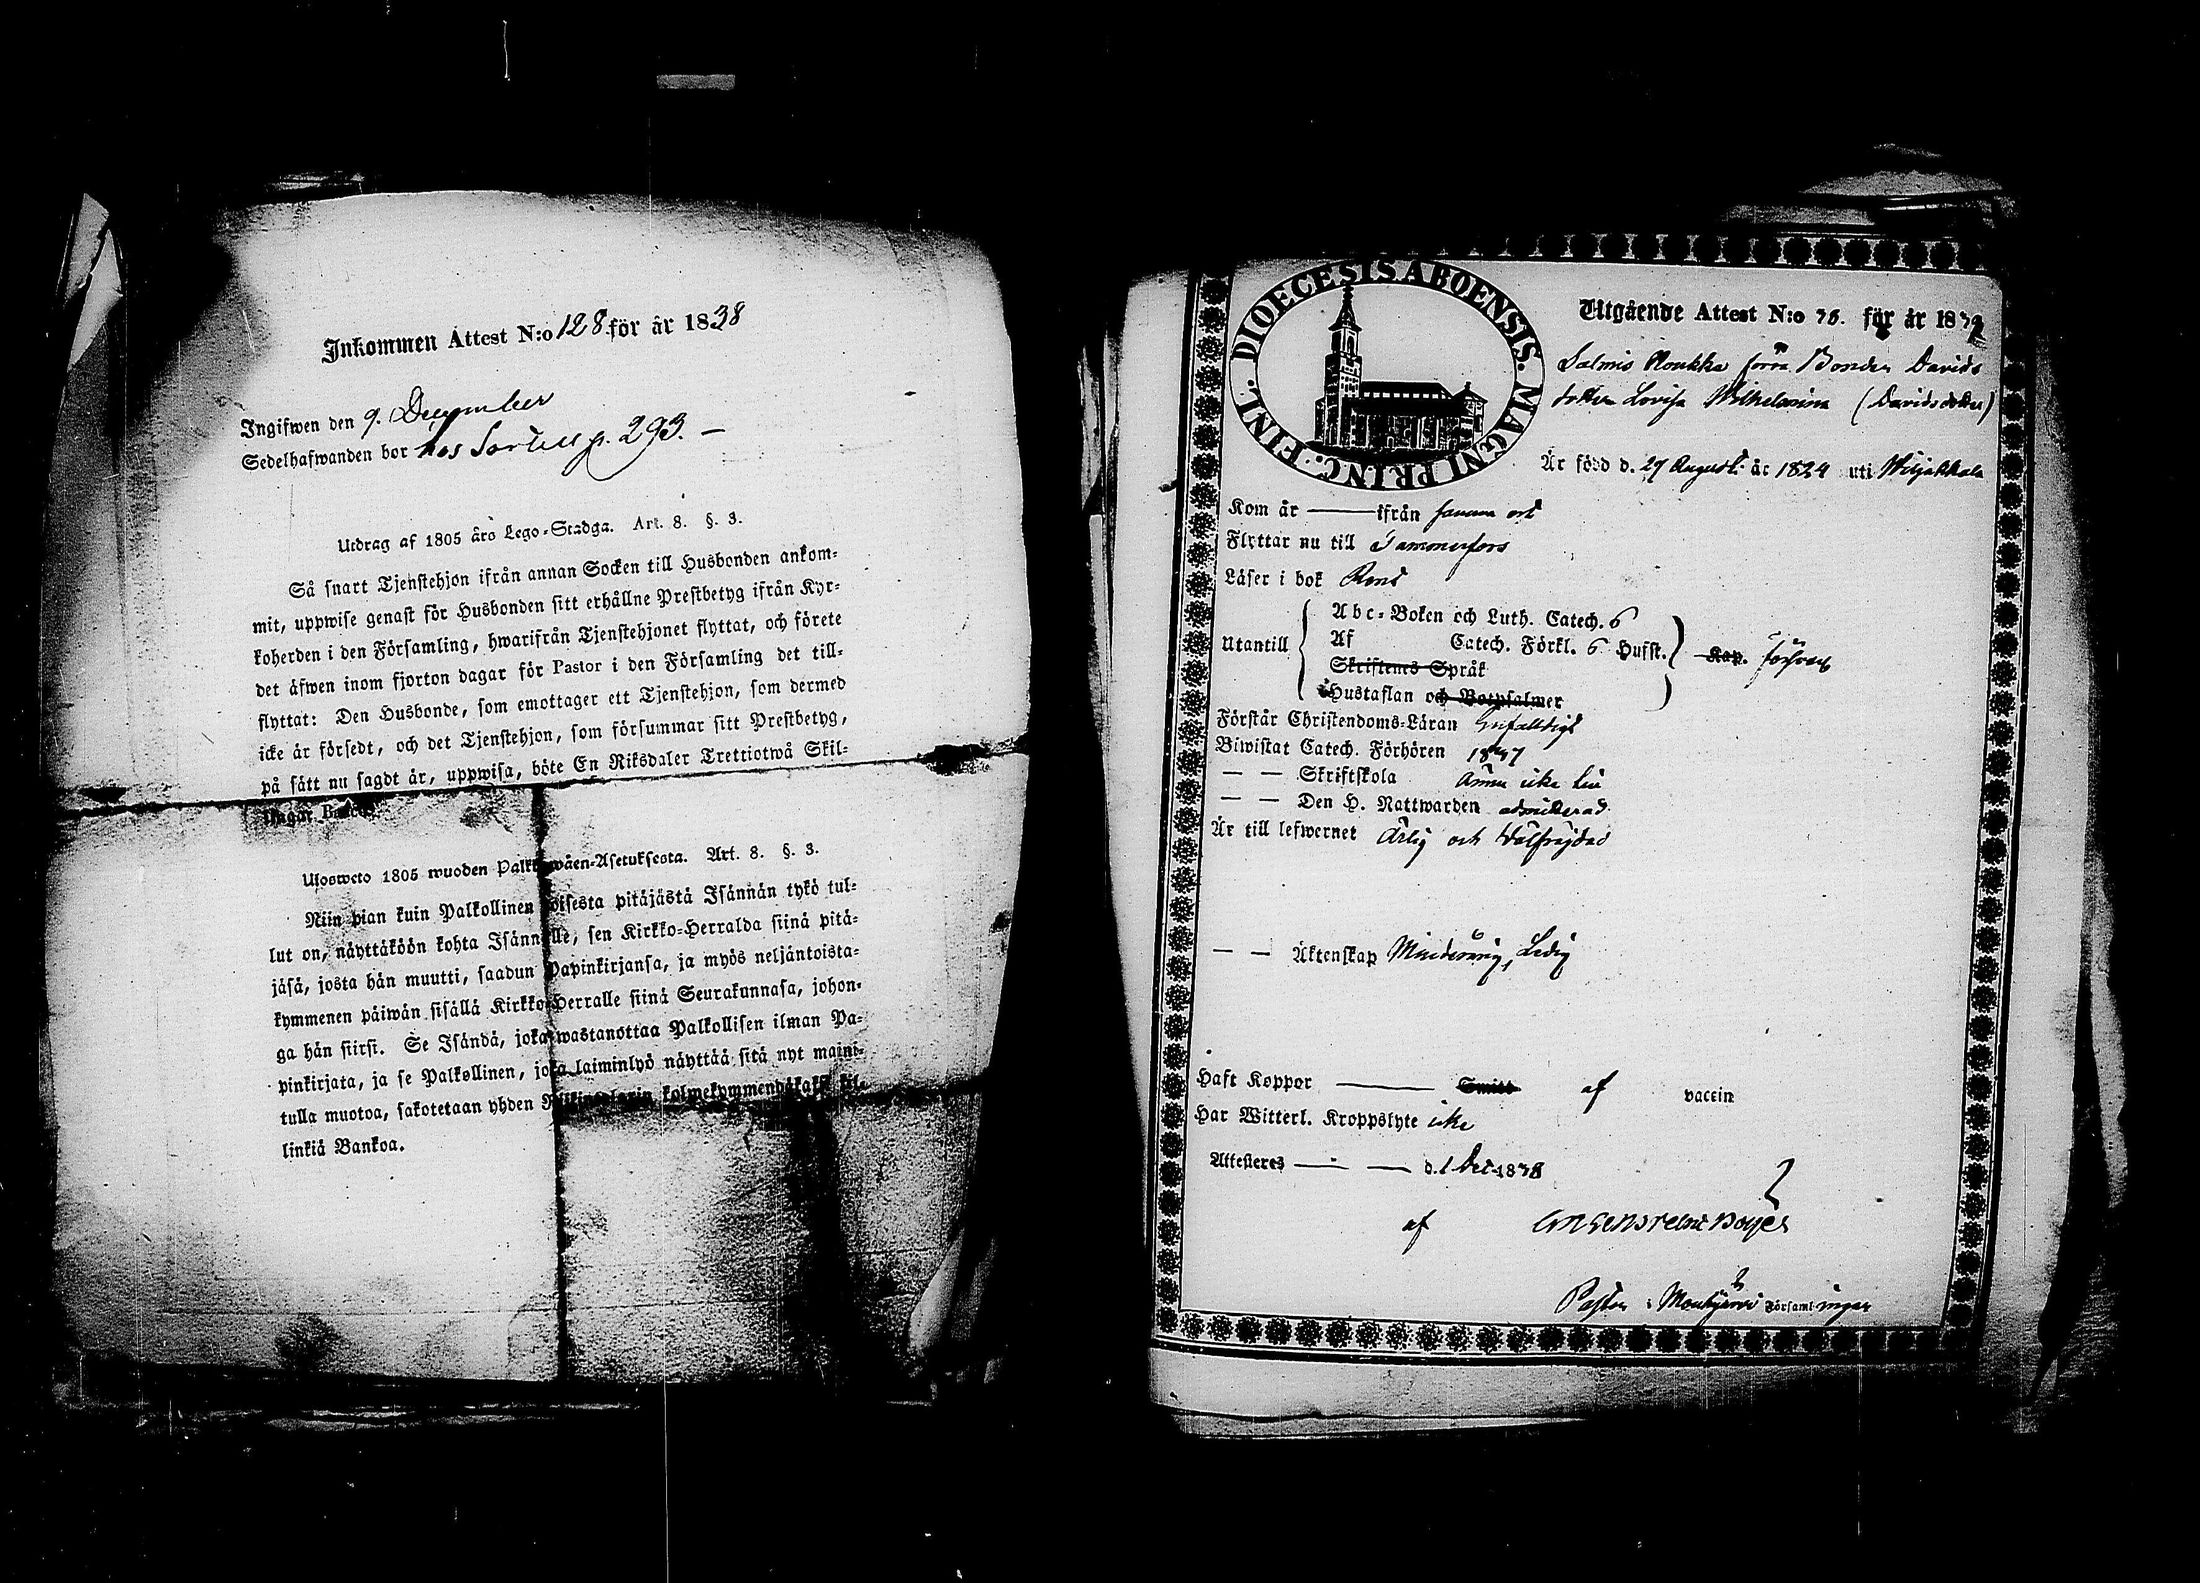 Inkommen Attest N:o 128 för år 1838
Ingifwen den 9. December
Sedelhafwanden bor hos p. 293. —
Utdrag af 1805 års Lego-Stadga. Art. 8. §. 3.
Så snart Tjenstehjon ifrån annan Socken till Husbonden ankom-
mit, uppwise genast för Husbonden sitt erhållne Prestbetyg ifrån Kyr-
koherden i den Församling, hwarifrån Tjenstehjonet flyttat, och förete
det äfwen inom fjorton dagar för Pastor i den Församling det till-
flyttat: Den Husbonde, som emottager ett Tjenstehjon, som dermed
icke är försedt, och det Tjenstehjon, som försummar sitt Prestbetyg,
på sätt nu sagdt är, uppwisa, böte En Riksdaler Trettiotwå Skil-
lingar Banco.
Ulosweto 1805 wuoden Palkkawäen-Asetuksesta. Art. 8. §. 3.
Niin pian kuin Palkollinen toisesta pitäjästä Isännän tykö tul-
lut on, näyttäköön kohta Isännälle, sen Kirkko-Herralda siinä pitä-
jäsä, josta hän muutti, saadun Papinkirjansa, ja myös neljäntoista-
kymmenen päiwän sisällä Kirkko-Herralle siinä Seurakunnasa, johon-
ga hän siirsi. Se Isändä, joka wastanottaa Palkollisen ilman Pa-
pinkirjata, ja se Palkollinen, joka laiminlyö näyttää sitä nyt maini-
tulla muotoa, sakotetaan yhden Riikintalarin kolmekymmendäkaksi kil-
linkiä Bankoa.
DIOECESIS ABOENSIS. MAGNI PRINC. FINL.
Utgående Attest N:o 76. för år 18
Salmis Roukka förra Bonden Davids
dotter Lovisa Wilhelmina (Davidsdotter)
Är född d. 27 Augusti år 1824 uti Wiljakkala
Kom år — ifrån samma ort
Flyttar nu till Tammerfors
Läser i bok Rent
Utantill
Abc-Boken och Luth. Catech. 6
Af Catech. Förkl. 6 Hufst. Kap. försvar
Skriftenes Språk
Hustaflan och Botpsalmer
Förstår Christendoms-Läran Enfaldigt
Biwistat Catech. Förhören
— — Skriftskola Ännu icke
— — Den H. Nattwarden admitterad
Är till lefwernet Ärlig och Wälfräjdad
— — Äktenskap Minderårig, Ledig
Haft Koppor — Smitt af vaccin
Har Witterl. Kroppslyte icke
Attesteres — — d. 1 Dec 1838
af
Pastor i Mouhijärvi Församlingar